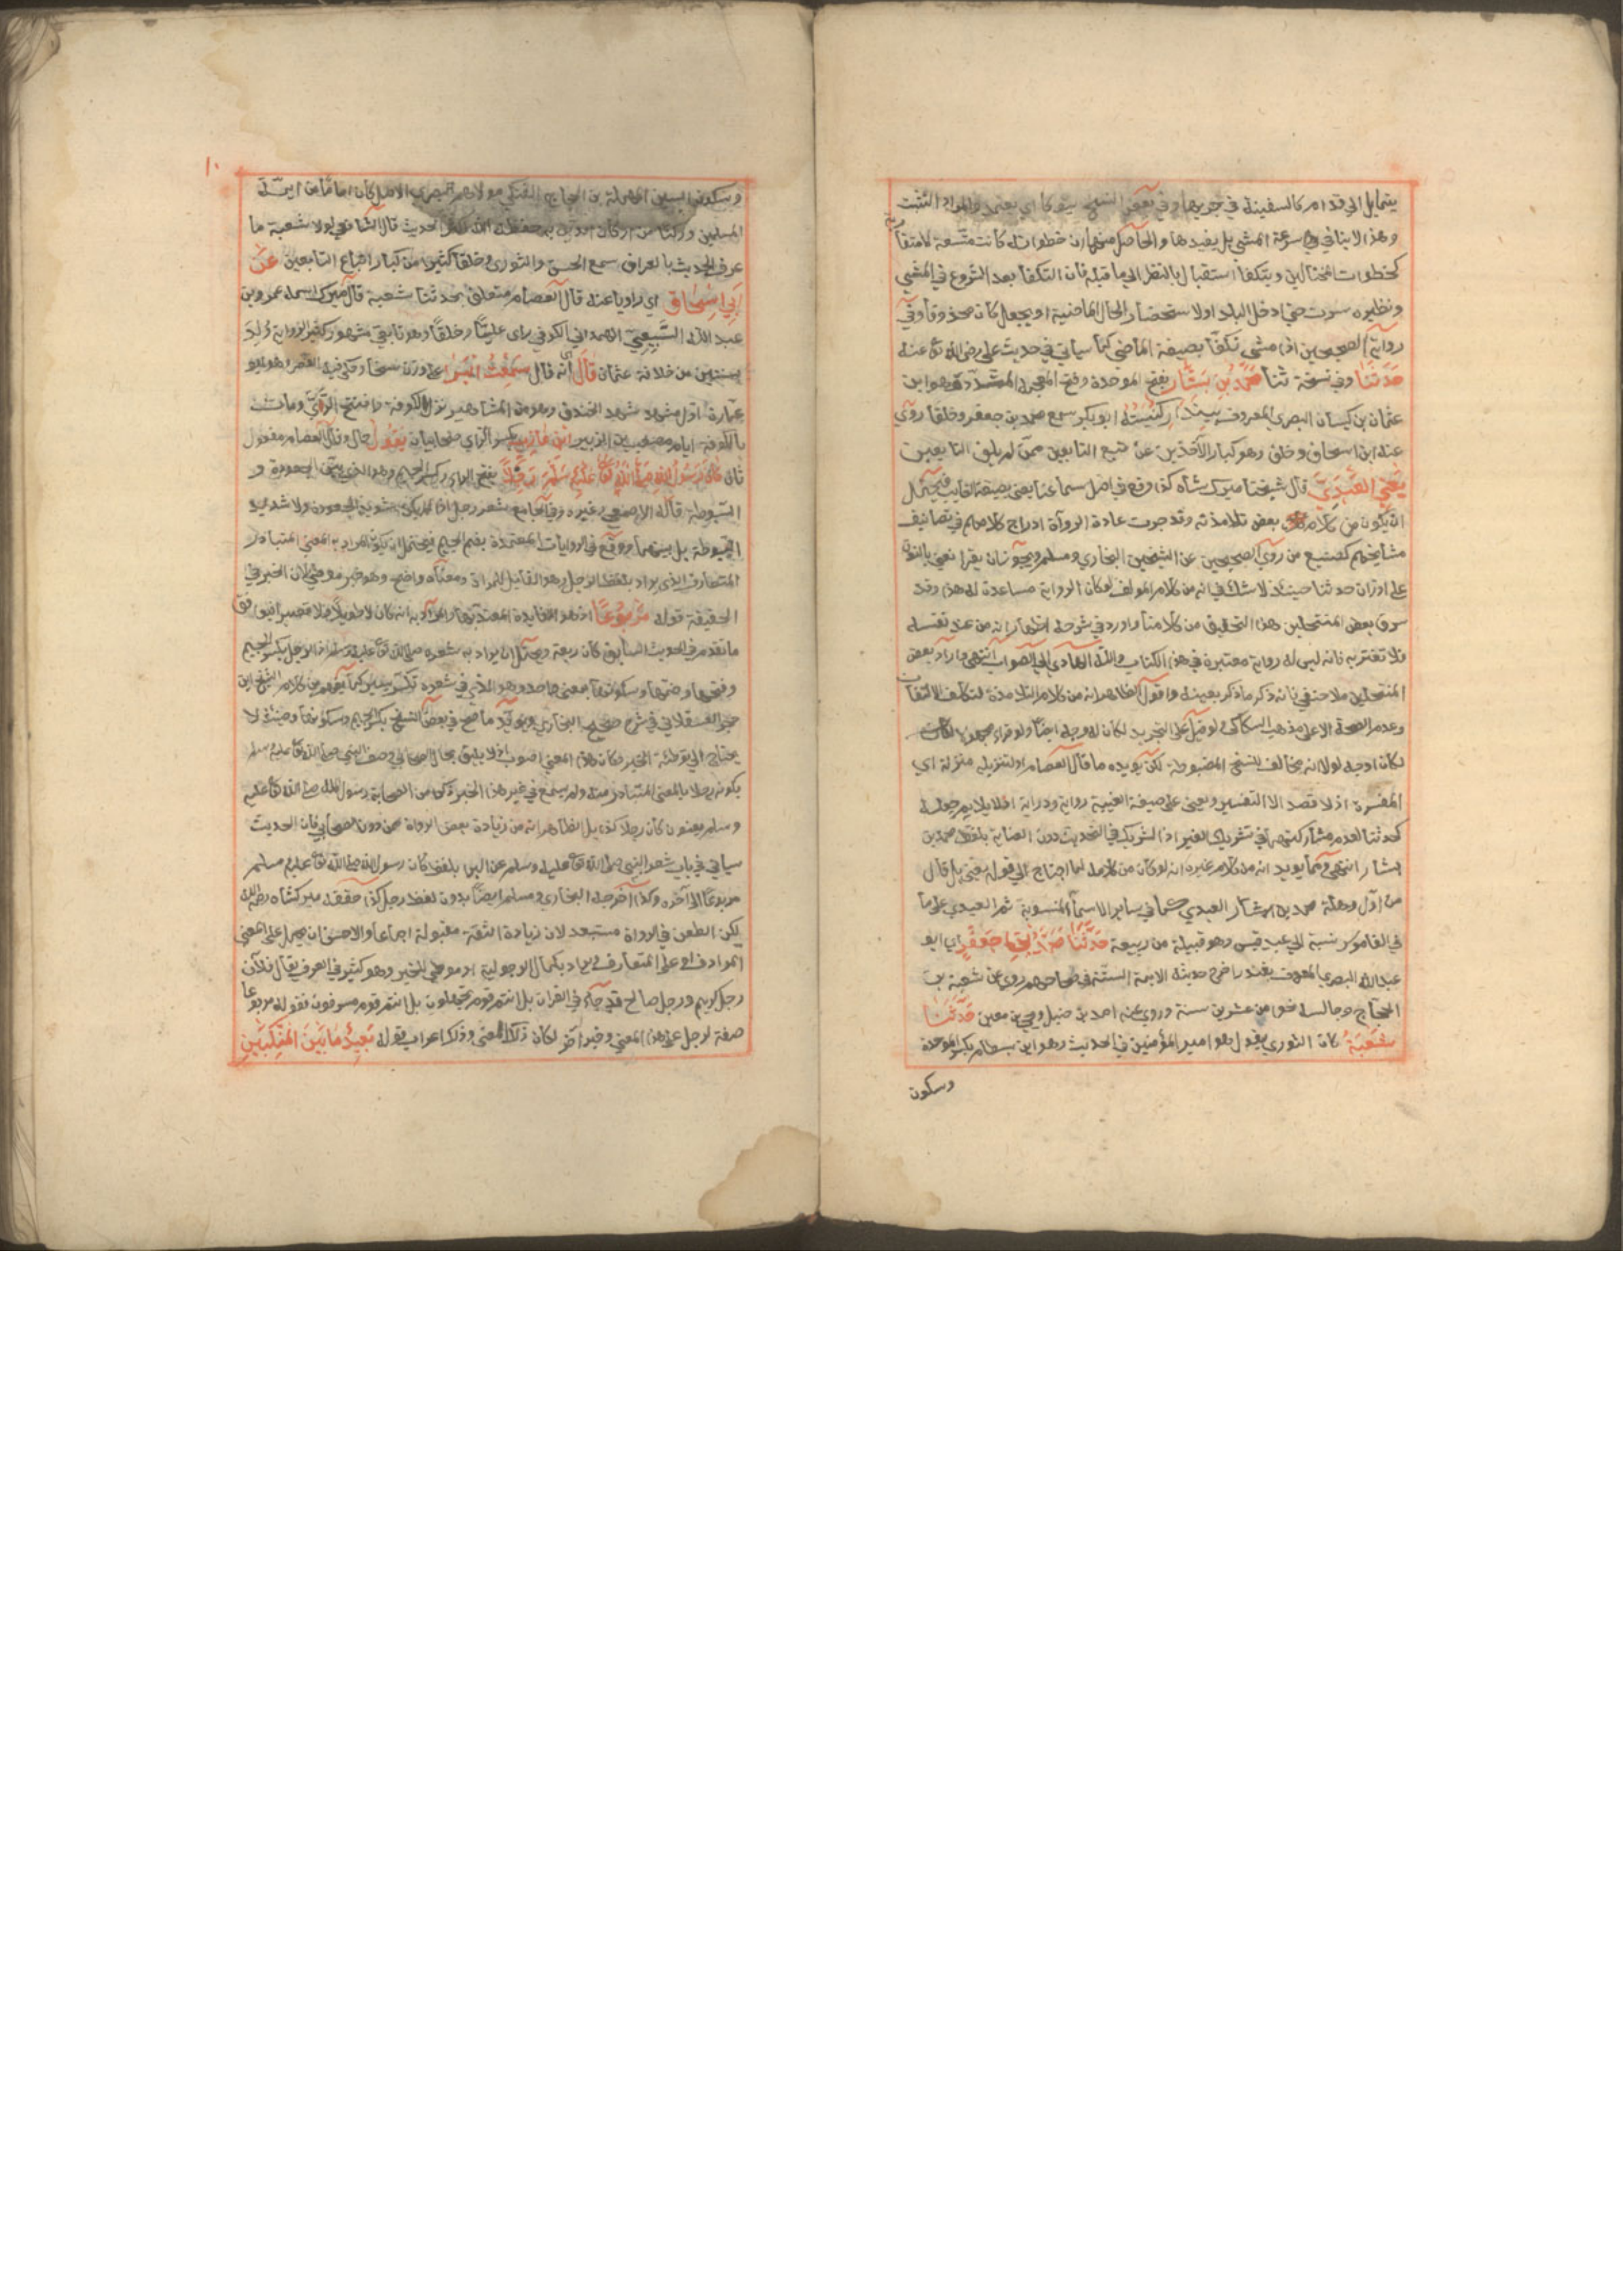 يتمايل الى قدام كالسفينة في جريها وفي بعض النسخ يتوكأ اي يعتمد والمراد التثبت
وهذا لا ينافي سرعة المشي بل يفيدها والحاصل منهما ان خطواته كانت متسعة لا متقاربة
كخطوات المختالين ويتكفأ استقبال بالنظر الى ما قبله فان التكفأ بعد الشروع في المشي
ونظيره سرت حتى ادخل البلد او لاستحضار الحال الماضية او يجعل كان محذوفا وفي
رواية الصحيحين اذا مشى تكفأ بصيغة الماضي كما سيأتي في حديث علي رضي الله تع عنه
حدثنا وفي نسخة ثنا محمد بن بشار بفتح الموحدة وفتح المعجمة المشددة هو ابن
عثمان بن كيسان البصري المعروف ببندار كنيته ابو بكر سمع محمد بن جعفر وخلقا روى
عنه ابن اسحاق وخلق وهو كبار الآخذين عن تبع التابعين ممن لم يلق التابعين
يعني العبدي قال شيخنا ميرك شاه كذا وقع في اصل سماعنا يعني بصيغة الغايب فيحتمل
ان يكون من كلام بعض تلامذته وقد جرت عادة الرواة ادراج كلامهم في تصانيف
مشايخهم كصنيع من روى الصحيحين عن الشيخين البخاري ومسلم ويجوز ان يقرا نعني بالنون
على وزان حدثنا حينئذ لا شك في انه من كلام المولف لو كان الرواية مساعدة له هذا وقد
سرق بعض المنتحلين هذا التحقيق من كلامنا واورد في شرحه اظهارا انه من عند نفسه
ولا تغتر به فانه ليس له رواية معتبرة في هذا الكتاب والله الهادي الى الصواب انتهى واراد بعض
المنتحلين ملا حنفي فانه ذكر ما ذكر بعينه واقول الظاهر انه من كلام التلامذة لتكلف الالتفات
وعدم الصحة الا على مذهب السكاكي ولو قيل على التجريد لكان له وجه ايضا ولو قراء مجهولا
لكان اوجه لولا انه مخالف للنسخ المضبوطة لكن يويده ما قال العصام او لتنزيله منزلة اي
المفسرة اذ لا قصد الا التفسير ويعني على صيغة الغيبة رواية ودراية اذ لا يلايم جعله
كحدثنا لعدم مشاركتهم في تشريك الغير اذ الشريك في التحديث دون العناية بلفظ محمد بن
بشار انتهى ومما يويد انه من كلام غيره انه لو كان من كلامه لما احتاج الى قوله يعني بل قال
من اول وهلة محمد بن بشار العبدي كما في ساير الاسماء المنسوبة ثم العبدي على ما
في القاموس نسبة الى عبد قيس وهو قبيلة من ربيعة حدثنا محمد بن جعفر اي ابو
عبد الله البصري المعروف بغندر اخرج حديثه الايمة الستة في صحاحهم روى عن شعبة بن
الحجاج وجالسه نحوا من عشرين سنة وروى عنه احمد بن حنبل ويحيى بن معين حدثنا
شعبة كان الثوري يقول هو امير المؤمنين في الحديث وهو ابن بسطام بكسر الموحدة
وسكون
١٠
وسكون السين المهملة بن الحجاج العتكي مولاهم البصري الاصل كان اماما من ايمة
المسلمين وركنا من اركان الدين به حفظ الله اكثر الحديث قال الشافعي لولا شعبة ما
عرف الحديث بالعراق سمع الحسن والثوري وخلقا كثيرا من كبار اتباع التابعين عن
ابي اسحاق اي راويا عنه قال العصام متعلق بحدثنا شعبة قال ميرك اسمه عمرو بن
عبد الله السبيعي الهمداني الكوفي راى عليا وخلقا وهو تابعي مشهور كثير الرواية ولد
بسنتين من خلافة عثمان قال اي انه قال سمعت البراء على وزن سحاب وحكي فيه القصر وهو ابو
عمارة اول مشهد شهد الخندق وهو من المشاهير نزل الكوفة وافتتح الري ومات
بالكوفة ايام مصعب بن الزبير ابن عازب بكسر الزاي صحابيان يقول حال وقال العصام مفعول
ثان كان رسول الله صلى الله تع عليه وسلم رجلا بفتح الراء وكسر الجيم وهو الذي بين الجعودة و
السبوطة قاله الاصمعي وغيره وفي الجامع شعر رجل اذا لم يكن شديد الجعودة ولا شديد
السبوطة بل بينهما ووقع في الروايات المعتمدة بضم الجيم فيحتمل ان يكون المراد به المعنى المتبادر
المتعارف الذي يراد بلفظ الرجل وهو المقابل للمراة ومعناه واضح وهو خبر موطئ لان الخبر في
الحقيقة قوله مربوعا اذ هو الفايدة المعتد بها والمراد به انه كان لا طويلا ولا قصيرا فيوافق
ما تقدم في الحديث السابق كان ربعة ويحتمل ان يراد به شعره صلى الله تع عليه وسلم اذ الرجل بكسر الجيم
وفتحها وضمها وسكونها بمعنى واحد وهو الذي في شعره تكسر يسير كما يفهم من كلام الشيخ ابن
حجر العسقلاني في شرح صحيح البخاري ويويد ما صح في بعض النسخ بكسر الجيم وسكونها وحينئذ لا
يحتاج الى توطئة الخبر وكان هذا المعنى اصوب اذ لا يليق بحال الصحابي وصف النبي صلى الله تع عليه وسلم
بكونه رجلا بالمعنى المتبادر منه ولم يسمع في غير هذا الخبر ذكر من الصحابة رسول الله صلى الله تع عليه
وسلم بعنوان كان رجلا كذا بل الظاهر انه من زيادة بعض الرواة ممن دون الصحابي فان الحديث
سياتي في باب شعر النبي صلى الله تع عليه وسلم عن البرا بلفظ كان رسول الله صلى الله تع عليه وسلم
مربوعا الى آخره وكذا اخرجه البخاري ومسلم ايضا بدون لفظ رجل كذا حققه ميركشاه رحمه الله
لكن الطعن في الرواة مستبعد لان زيادة الثقة مقبولة اجماعا والاحسن ان يحمل على المعنى
المرادف او على المتعارف ويراد به كمال الرجولية او موطئ للخبر وهو كثير في العرف يقال فلان
رجل كريم ورجل صالح قد جاء في القران بل انتم قوم تجهلون بل انتم قوم مسرفون فقوله مربوعا
صفة لرجل على هذا المعنى وخبر اخر لكان ذلك المعنى وكذا اعراب قوله بعيد ما بين المنكبين